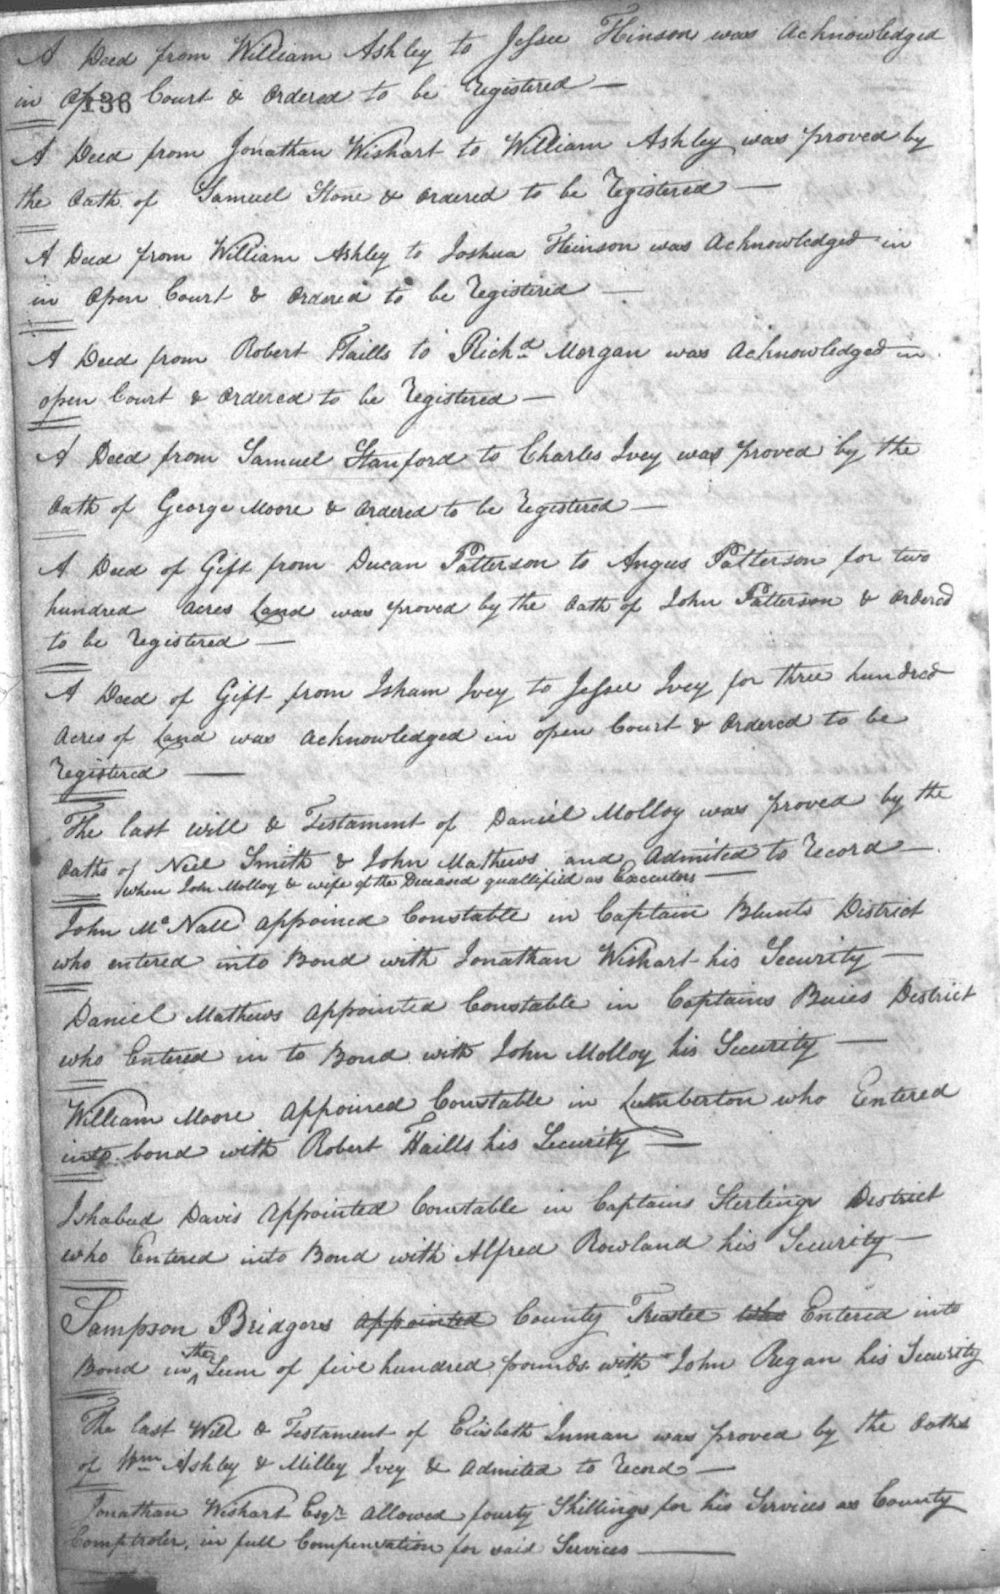 A Deed from William Ashley to Jessee Hinson was Acknowledged
in Op 136 Court & Ordered to be Registered —
A Deed from Jonathan Wishart to William Ashley was proved by
the Oath of Samuel Stone & Ordered to be Registered —
A Deed from William Ashley to Joshua Hinson was Acknowledged in
in Open Court & Ordered to be Registered —
A Deed from Robert Haills to Richd Morgan was Acknowledged in
open Court & Ordered to be Registered —
A Deed from Samuel Stanford to Charles Ivey was proved by the
Oath of George Moore & Ordered to be Registered —
A Deed of Gift from Ducan Patterson to Angus Patterson for two
hundred Acres Land was proved by the Oath of John Patterson & Ordered
to be Registered —
A Deed of Gift from Isham Ivey to Jessee Ivey for three hundred
Acres of Land was Acknowledged in open Court & Ordered to be
Registered —
The last will & Testament of Daniel Molloy was proved by the
Oaths of Neil Smith & John Mathews and Admited to Record —
when John Molloy & wife of the Deceased quallifiid as Executors —
John Mc Nall appoined Constable in Captain Blunts District
who entered into Bond with Jonathan Wishart his Security —
Daniel Mathews appointed Constable in Captains Buies District
who Entered in to Bond with John Molloy his Security —
William Moore appoined Constable in Lumberton who Entered
into bond with Robert Haills his Security —
Ishabud Davis appointed Constable in Captains Sterlings District
who Entered into Bond with Alfred Rowland his Security —
Sampson Bridgers appointed County Trustee who Entered into
Bond in the Sum of five hundred pounds with John Regan his Security
The last Will & Testament of Elisbeth Inman was proved by the Oaths
of Wm Ashley & Milley Ivey & Admited to Record —
Jonathan Wishart Esqr. allowed fourty Shillings for his Services as County
Comptroler, in full Compensation for said Services —